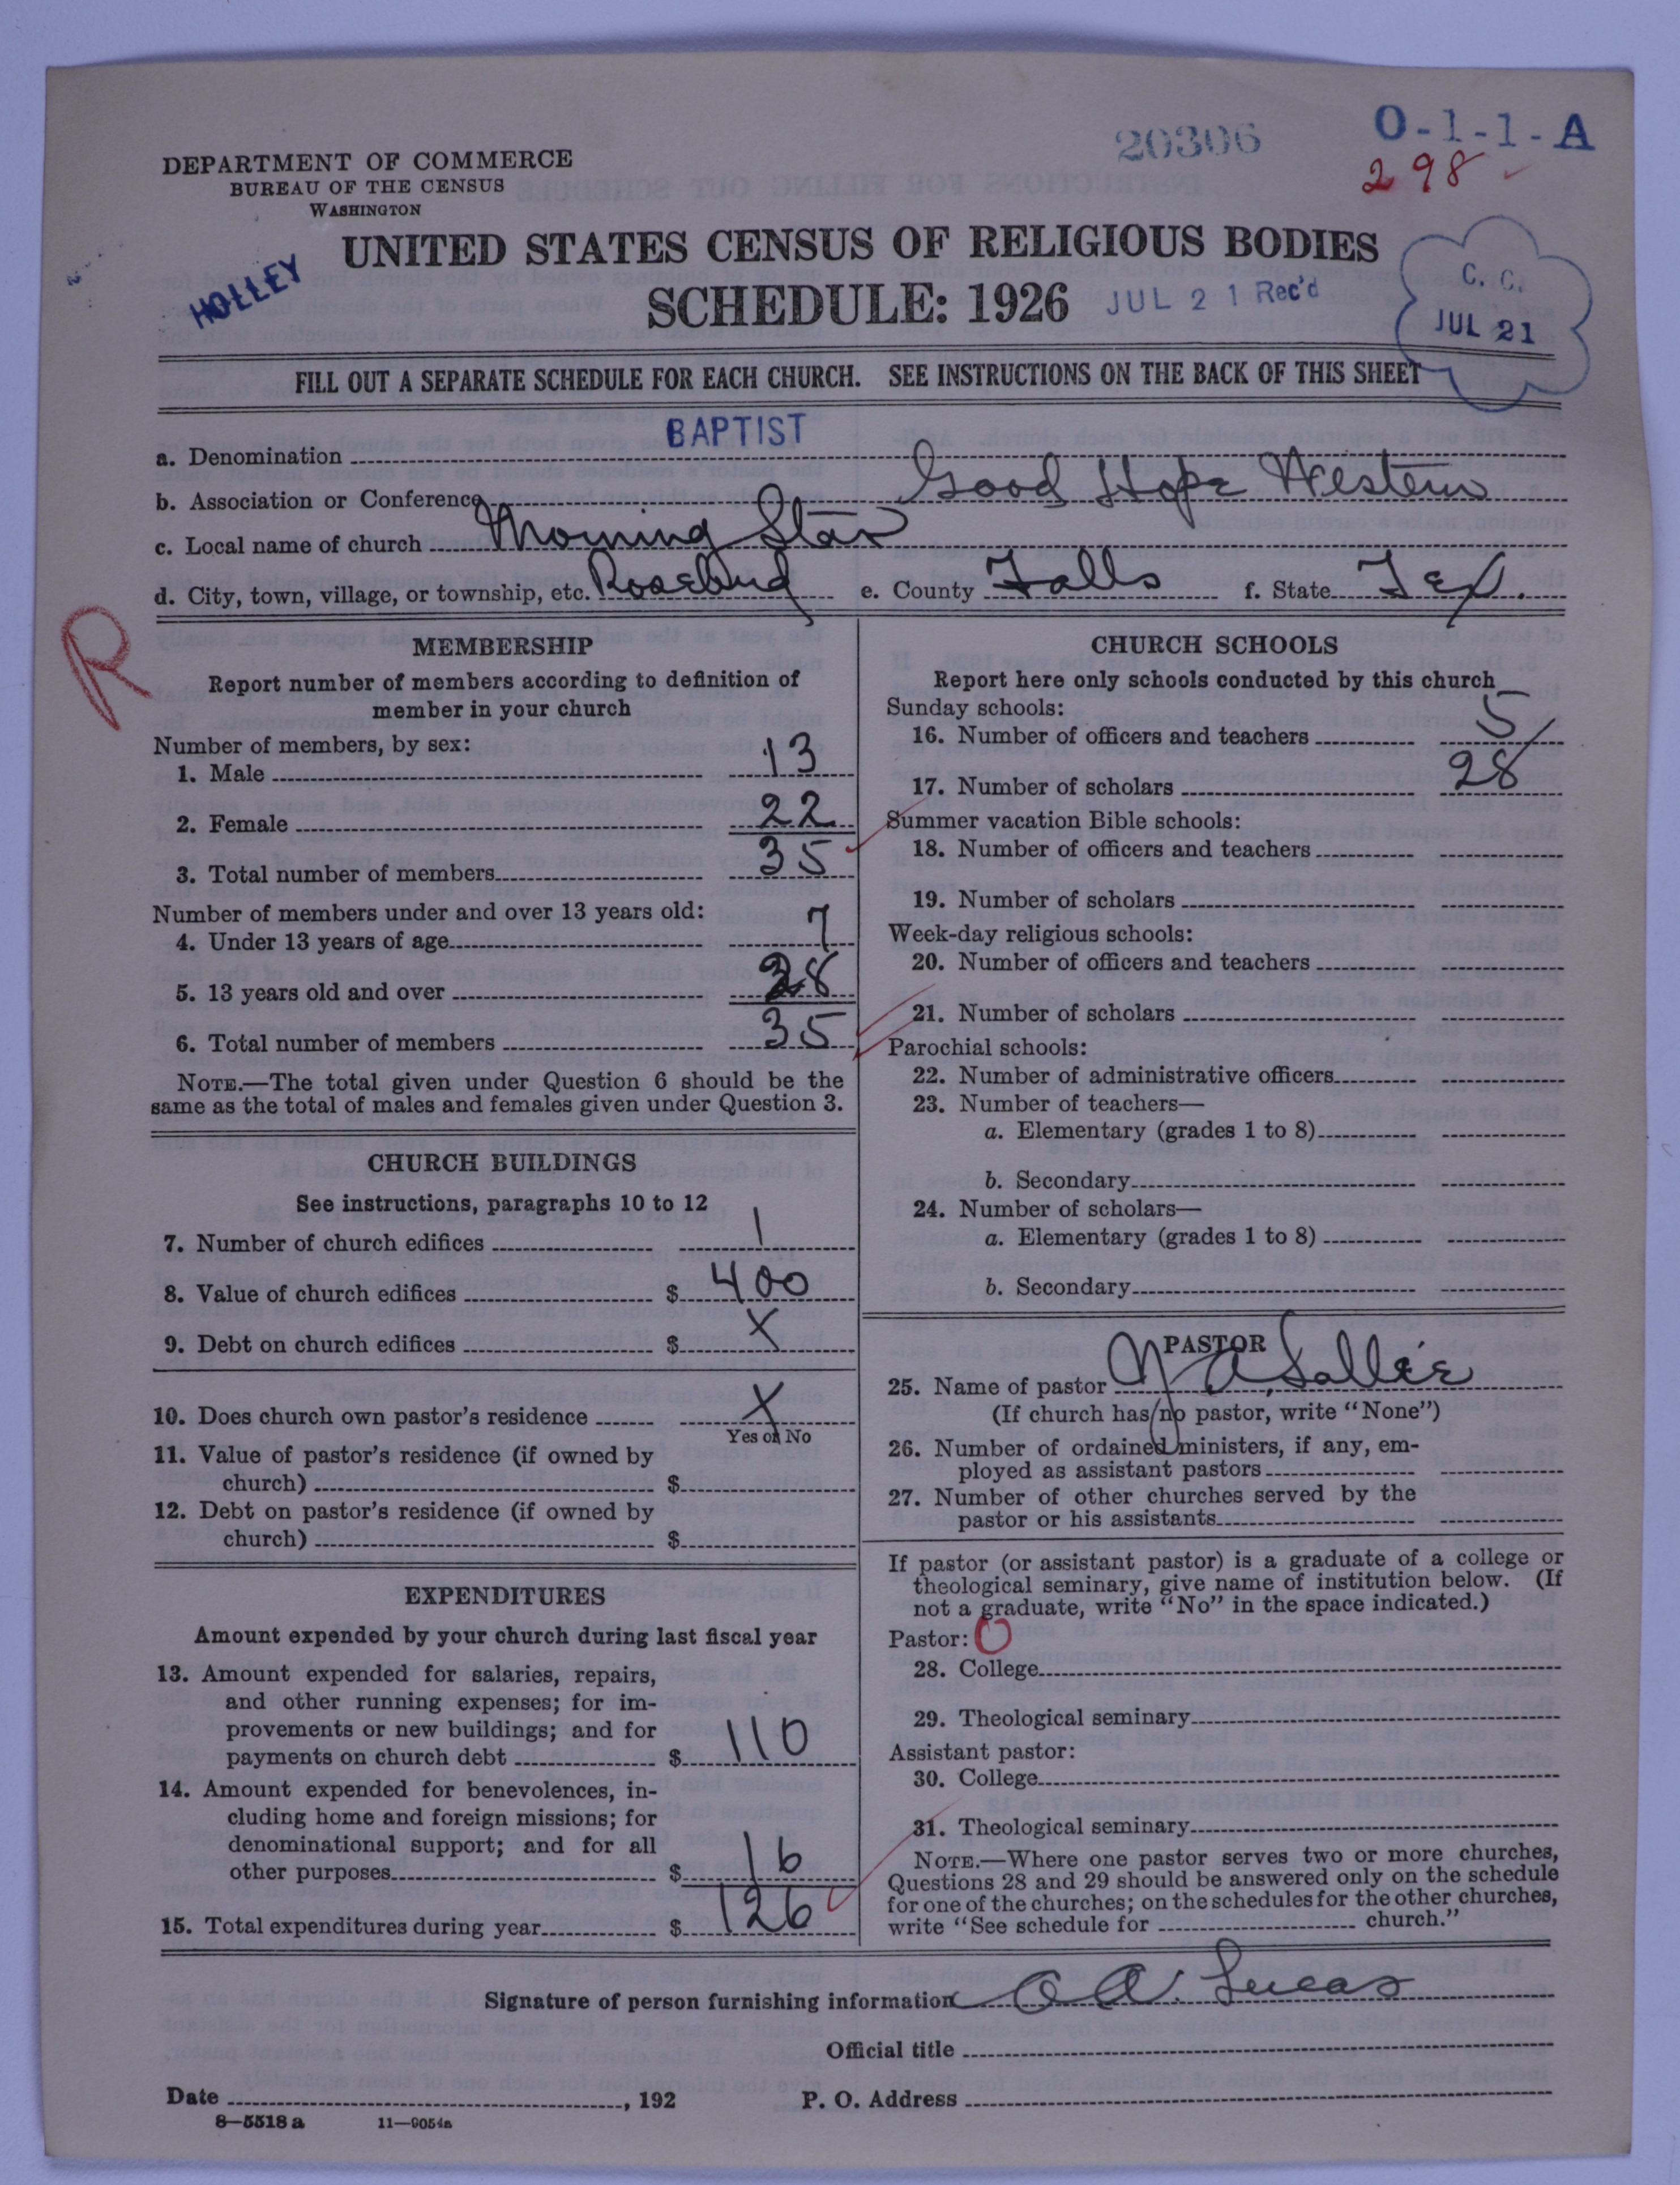 20306
O-1-1-A
298
DEPARTMENT OF COMMERCE
BUREAU OF THE CENSUS
WASHINGTON
HOLLEY
UNITED STATES CENSUS OF RELIGIOUS BODIES
SCHEDULE: 1926
JUL 21 Rec'd
C. C.
JUL 21
FILL OUT A SEPARATE SCHEDULE FOR EACH CHURCH. SEE INSTRUCTIONS ON THE BACK OF THIS SHEET
a. Denomination BAPTIST
b. Association or Conference Good Hope Western
c. Local name of church Morning Star
d. City, town, village, or township, etc. Rosebud e. County Falls f. State Tex.
R
MEMBERSHIP
Report number of members according to definition of
member in your church
Number of members, by sex:
1. Male 13
2. Female 22
3. Total number of members 35
Number of members under and over 13 years old:
4. Under 13 years of age 7
5. 13 years old and over 28
6. Total number of members 35
NOTE.—The total given under Question 6 should be the
same as the total of males and females given under Question 3.
CHURCH BUILDINGS
See instructions, paragraphs 10 to 12
7. Number of church edifices 1
8. Value of church edifices $ 400
9. Debt on church edifices $ X
10. Does church own pastor's residence X
Yes or No
11. Value of pastor's residence (if owned by
church) $
12. Debt on pastor's residence (if owned by
church) $
EXPENDITURES
Amount expended by your church during last fiscal year
13. Amount expended for salaries, repairs,
and other running expenses; for im-
provements or new buildings; and for
payments on church debt $ 110
14. Amount expended for benevolences, in-
cluding home and foreign missions; for
denominational support; and for all
other purposes $ 16
15. Total expenditures during year $ 126
CHURCH SCHOOLS
Report here only schools conducted by this church
Sunday schools:
16. Number of officers and teachers 5
17. Number of scholars 28
Summer vacation Bible schools:
18. Number of officers and teachers
19. Number of scholars
Week-day religious schools:
20. Number of officers and teachers
21. Number of scholars
Parochial schools:
22. Number of administrative officers
23. Number of teachers—
a. Elementary (grades 1 to 8)
b. Secondary
24. Number of scholars—
a. Elementary (grades 1 to 8)
b. Secondary
PASTOR
25. Name of pastor A Sallee
(If church has no pastor, write "None")
26. Number of ordained ministers, if any, em-
ployed as assistant pastors
27. Number of other churches served by the
pastor or his assistants
If pastor (or assistant pastor) is a graduate of a college or
theological seminary, give name of institution below. (If
not a graduate, write "No" in the space indicated.)
Pastor: O
28. College
29. Theological seminary
Assistant pastor:
30. College
31. Theological seminary
NOTE.—Where one pastor serves two or more churches,
Questions 28 and 29 should be answered only on the schedule
for one of the churches; on the schedules for the other churches,
write "See schedule for church."
Signature of person furnishing information O A. Lucas
Official title
Date , 192 P. O. Address
8—5518 a 11—9054a